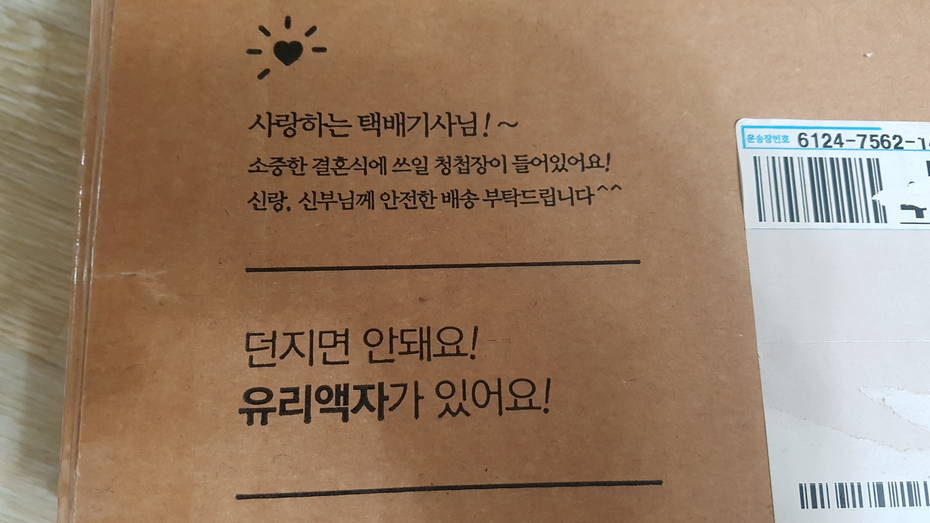 사랑하는 택배기사님!~
소중한 결혼식에 쓰일 청첩장이 들어있어요!
신랑, 신부님께 안전한 배송 부탁드립니다^^
던지면 안돼요!
유리액자가 있어요!
운송장번호 6124-7562-1